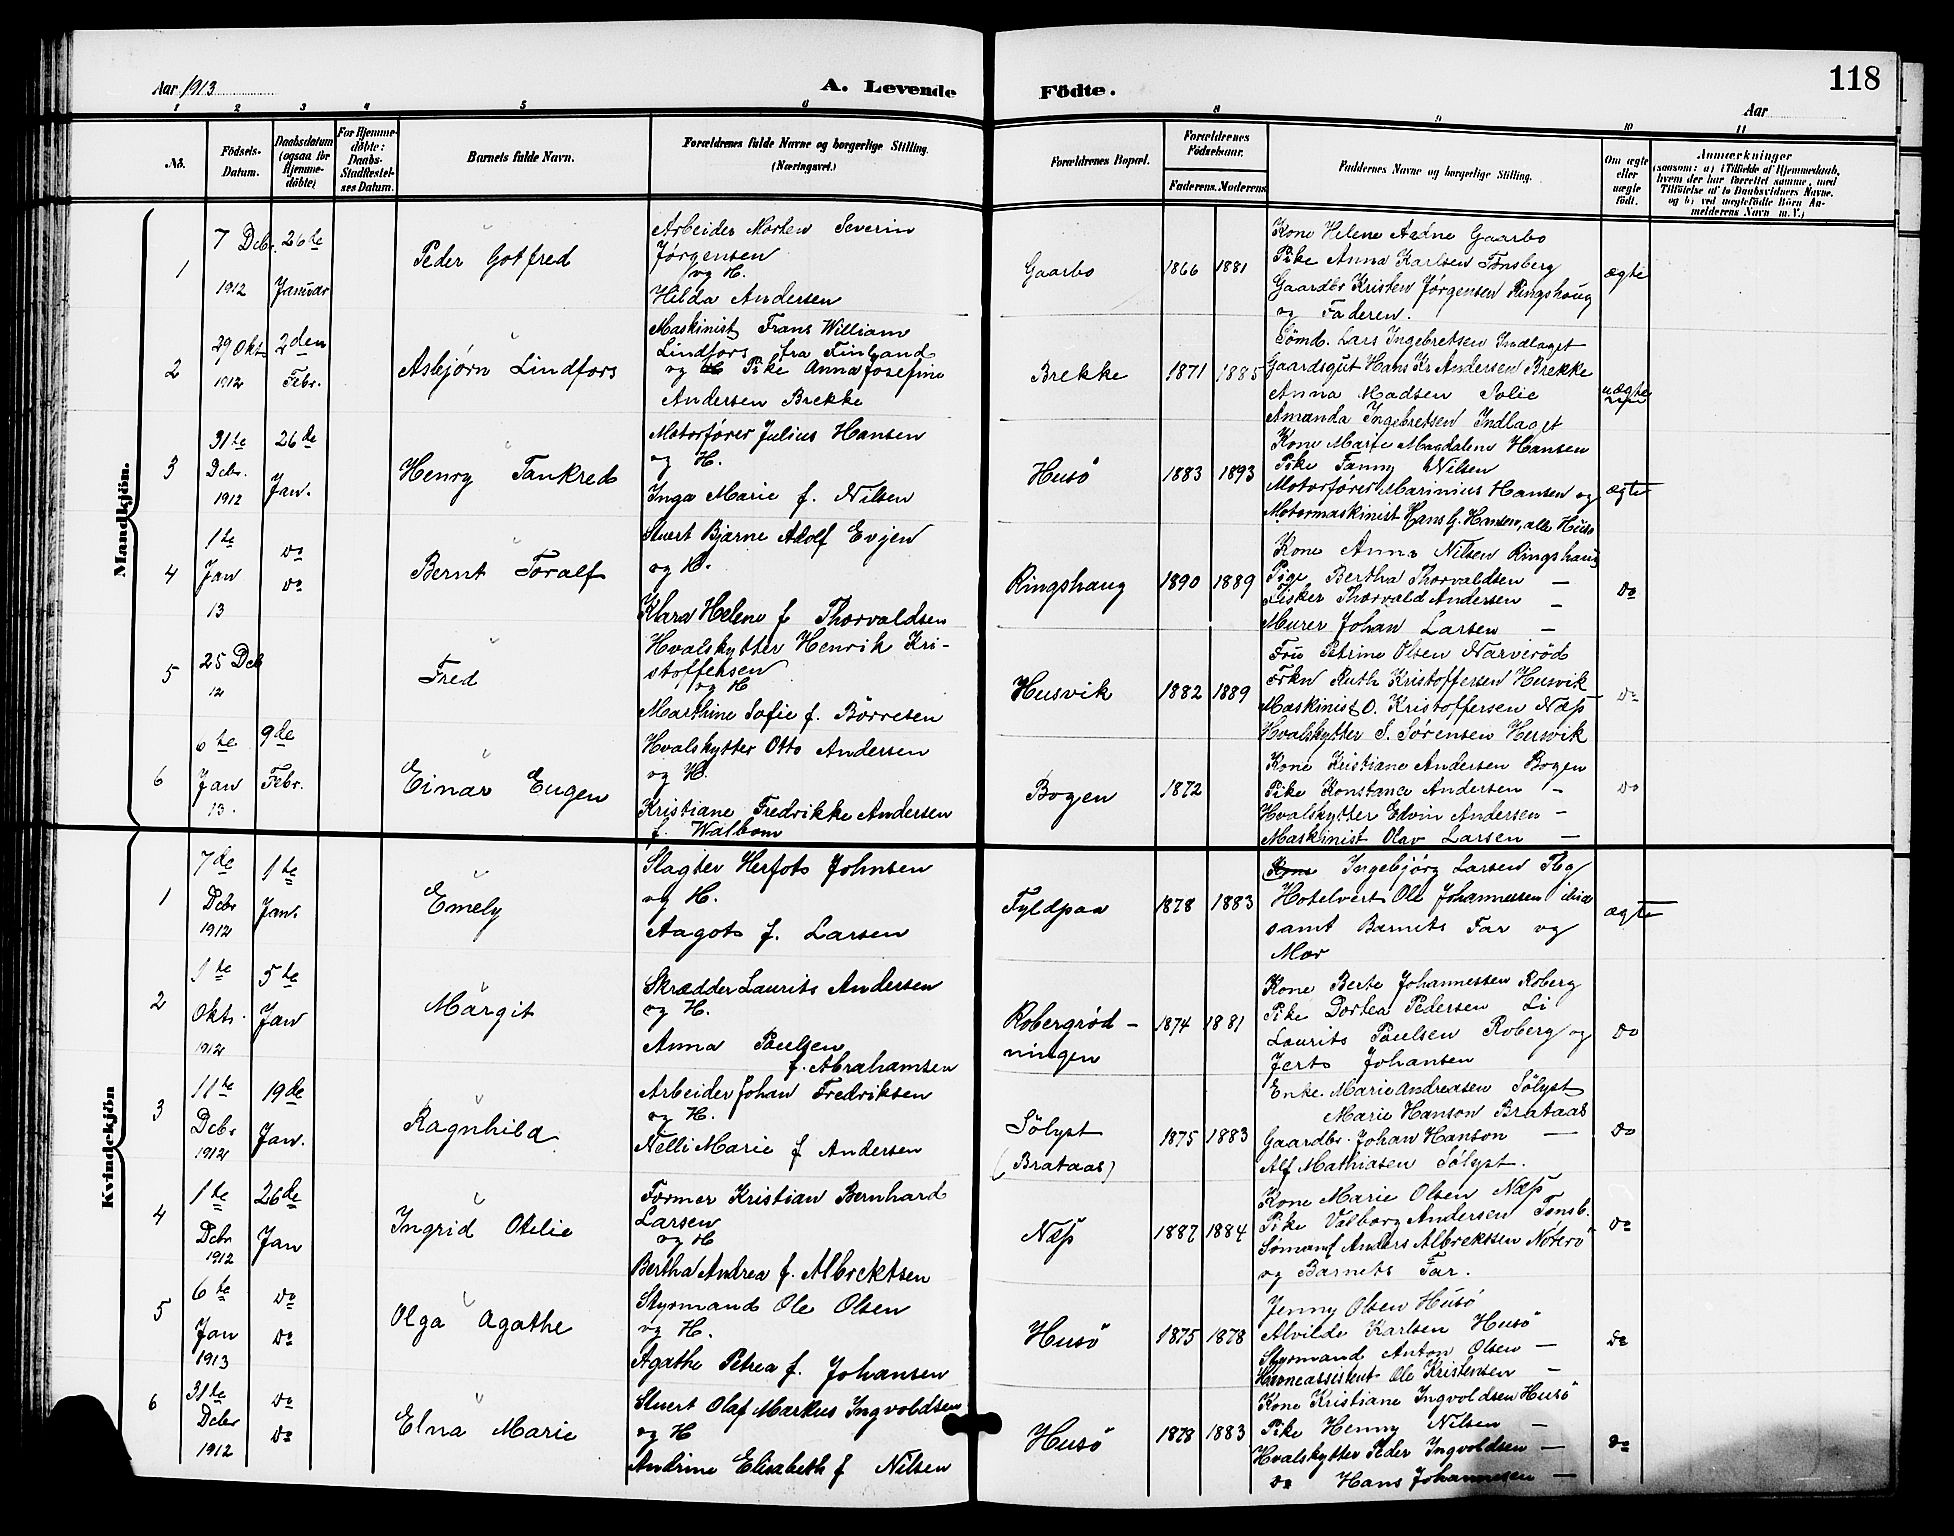 Aar 1913
A. Levende
Födte.
118
Aar
1 2 3 4 5 6 8 9 10 11
No.
Födsels-Datum.
Daabsdatum (ogsaa for Hjemmedöbte)
For Hjemmedöbte: Daabs-Stadfestelses Datum.
Barnets fulde Navn.
Forældrenes fulde Navne og borgerlige Stilling. (Næringsvei.)
Forældrenes Bopæl.
Forældrenes Födselsaar.
Faderens. Moderens
Faddernes Navne og borgerlige Stilling.
Om ægte eller uægte födt.
Anmærkninger
(saasom: a) i Tilfælde af Hjemmedaab, hvem der har forrettet samme, med Tilföielse af to Daabsvidners Navne. og b) ved uægtefödte Börn Anmelderens Navn m. V.)
Mandkjön.
1
7 Debr. 1912
26de Januar
Peder Gotfred
Arbeider Morten Severin
Jørgensen
og H.
Hilda Andersen
Gaarbo
1866 1881
Kone Helene Arne Gaarbo
Pike Anna Karlsen Tønsberg
Gaardbr Kristen Jørgensen Ringshaug
og Faderen.
ægte
2
29 Okt 1912
2den Febr.
Asbjørn Lindfors
Maskinist Frans William
Lindfors fra Finland
og Pike Anna Josefine
Andersen Brekke
Brekke
1871 1885
Sømd. Lars Ingebretsen Indlaget
Gaardsgut Hans Kr Andersen Brekke
Anna Madsen Jolie
Amanda Ingebretsen Indlaget
uægte
3
31te Debr. 1912
26de Jan.
Henry Tankred
Motorfører Julius Hansen
og H.
Inga Marie f. Nilsen
Husö
1883 1893
Kone Marie Magdalene Hansen
Pike Fanny Nilsen
Motorfører Marinius Hansen og
Motormaskinist Hans G. Hansen, alle Husö
ægte
4
1te Jan 13
do do
Bernt Toralf
Stuert Bjarne Adolf Evjen
og H.
Klara Helene f Thorvaldsen
Ringshaug
1890 1889
Kone Anna Nilsen Ringshaug
Pige Bertha Thorvaldsen —
Fisker Thorvald Andersen —
Murer Johan Larsen —
do
5
25 Deb 12
Fred
Hvalskytter Henrik Kri-
stoffersen
og H
Marthine Sofie f. Börresen
Husvik
1882 1889
Fru Petrine Olsen Narverød
Frkn Ruth Kristoffersen Husvik
Maskinist O. Kristoffersen Næss
Hvalskytter S. Sørensen Husvik
do
6
6te Jan 13.
9de Febr.
Einar Eugen
Hvalskytter Otto Andersen
og H.
Kristiane Fredrikke Andersen
f. Walbom
Bogen
1872
Kone Kristiane Andersen Bogen
Pike Konstance Andersen —
Hvalskytter Edvin Andersen —
Maskinist Olav Larsen —
do
Kvindekjön
1
7de Debr 1912
1te Jan.
Emely
Slagter Herfots Johnsen
og H.
Aagots f. Larsen
Fyldpaa
1878 1883
Kone Ingebjørg Larsen Tbg
Hotelvert Ole Johannessen ibid
samt Barnets Far og
Mor
ægte
2
1te Oktr. 1912
5te Jan
Margit
Skrædder Laurits Andersen
og H.
Anna Paulsen
f. Abrahamsen
Robergrød-
ningen
1874 1881
Kone Berte Johannessen Roberg
Pike Dortea Pedersen Li
Laurits Paulsen Roberg og
Jerts Johansen
do
3
11te Debr 1912
19de Jan.
Ragnhild
Arbeider Johan Fredriksen
og H.
Nelli Marie f Andersen
Sölyst
(Brataas)
1875 1883
Enke. Marie Andreasen Sölyst
Marie Hanson Brataas
Gaardbr. Johan Hanson —
Alf Mathiasen Sölyst.
do
4
1te Debr 1912
26de Jan
Ingrid Otelie
Former Kristian Bernhard
Larsen
og H
Bertha Andrea f. Albrektsen
Næss
1887 1884
Kone Marie Olsen Næss
Pike Valborg Andersen Tønsb.
Sømand Anders Albrektssen Nøterö
og Barnets Far.
do
5
6te Jan 1913
do do
Olga Agathe
Styrmand Ole Olsen
og H.
Agathe Petrea f. Johansen
Husö
1875 1878
Jenny Olsen Husö
Alvilde Karlsen Husö
Styrmand Anton Olsen —
Havneassistent Ole Kristensen —
do
6
31te Debr 1912
do do
Elna Marie
Stuert Olaf Markus Ingvoldsen
og H
Andrine Elisabeth f Nilsen
Husö
1878 1883
Kone Kristiane Ingvoldsen Husö
Pike Henny Nilsen —
Hvalskytter Peder Ingvoldsen —
do Hans Johannesen —
do